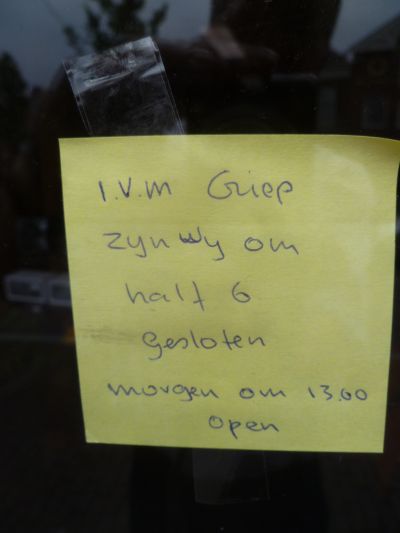 I.V.M Griep
zyn wy om
half 6
gesloten
morgen om 13.00
open